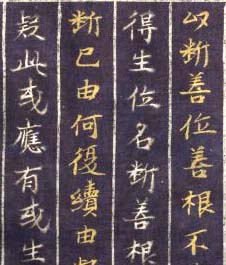 以斷善位善根不
得生位名斷善根
斷已由何復續由
疑此或應有或生